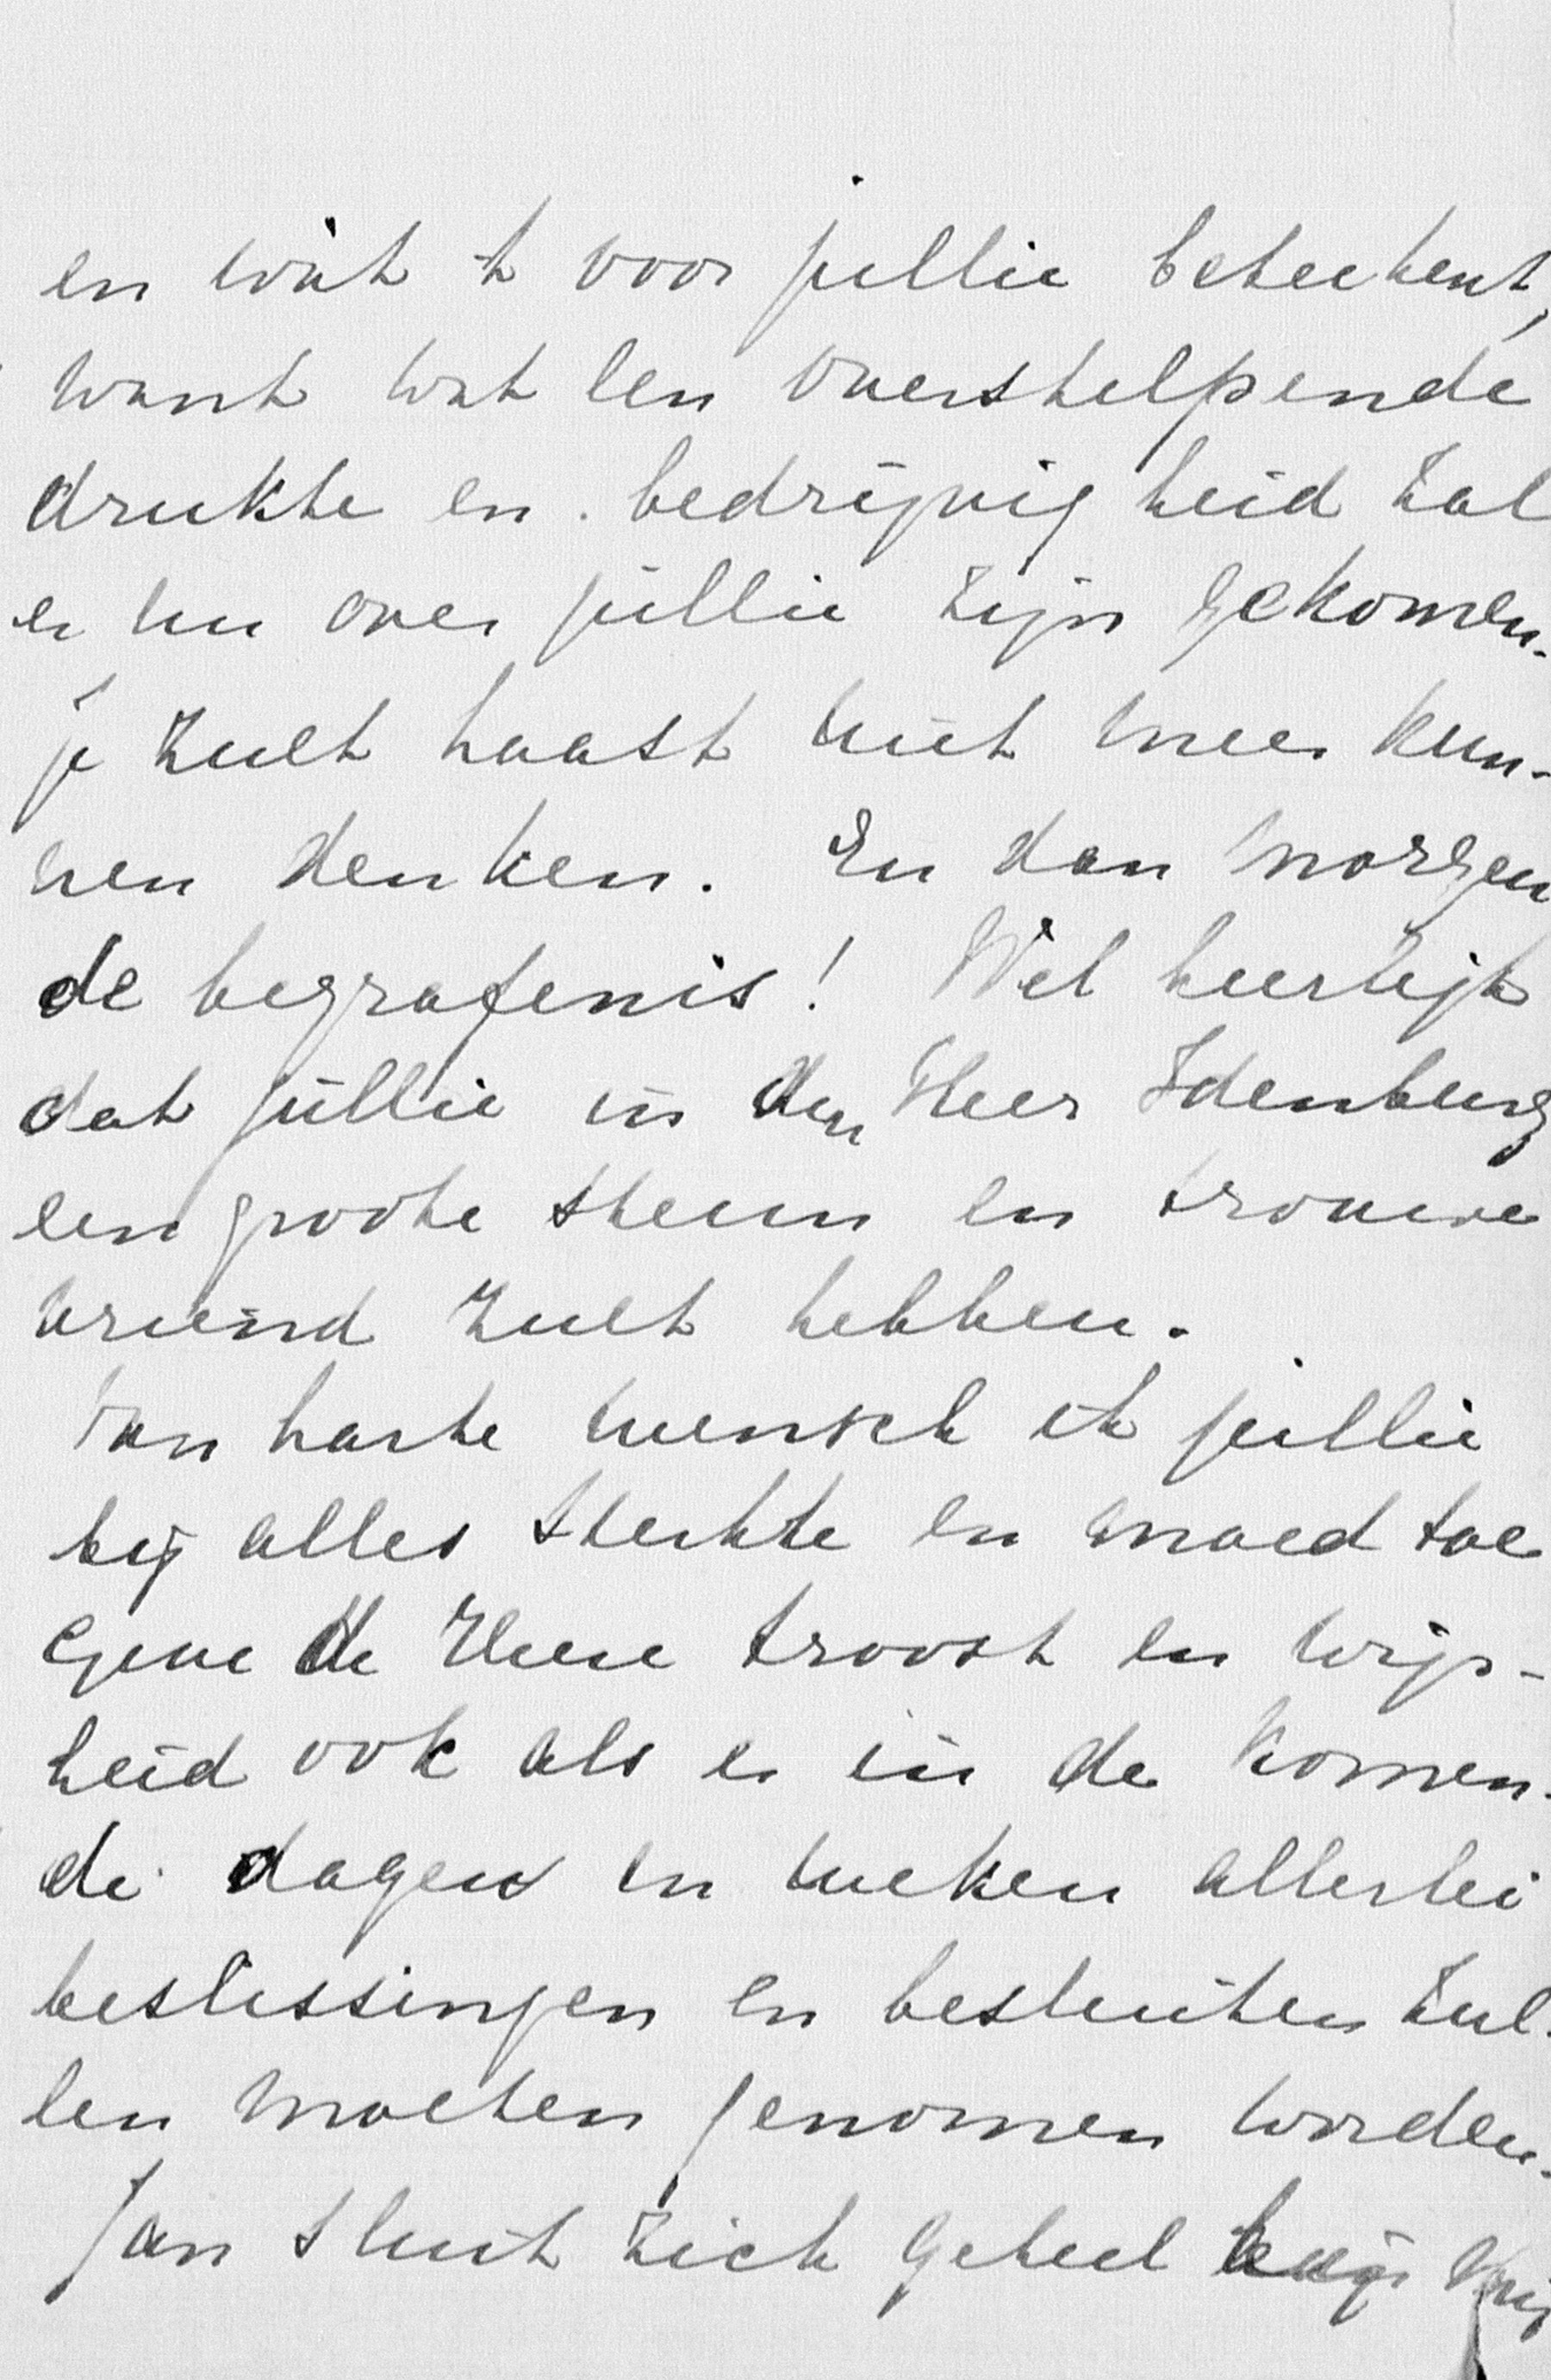 en wàt 't voor jullie beteekent,
want wat een overstelpende
drukte en bedrijvigheid zal
er nu over jullie zijn gekomen.
je zult haast niet meer kun-
nen denken. En dan morgen
de begrafenis! Wel heerlijk
dat jullie in den Heer Idenburg
een groote steun en trouwe
vriend zult hebben.
Van harte wensch ik jullie
bij alles sterkte en moed toe
Geve de Heere troost en wijs-
heid ook als er in de komen-
de dagen en weken allerlei
beslissingen en besluiten zul-
len moeten genomen worden.
Jan sluit zich geheel bij mij